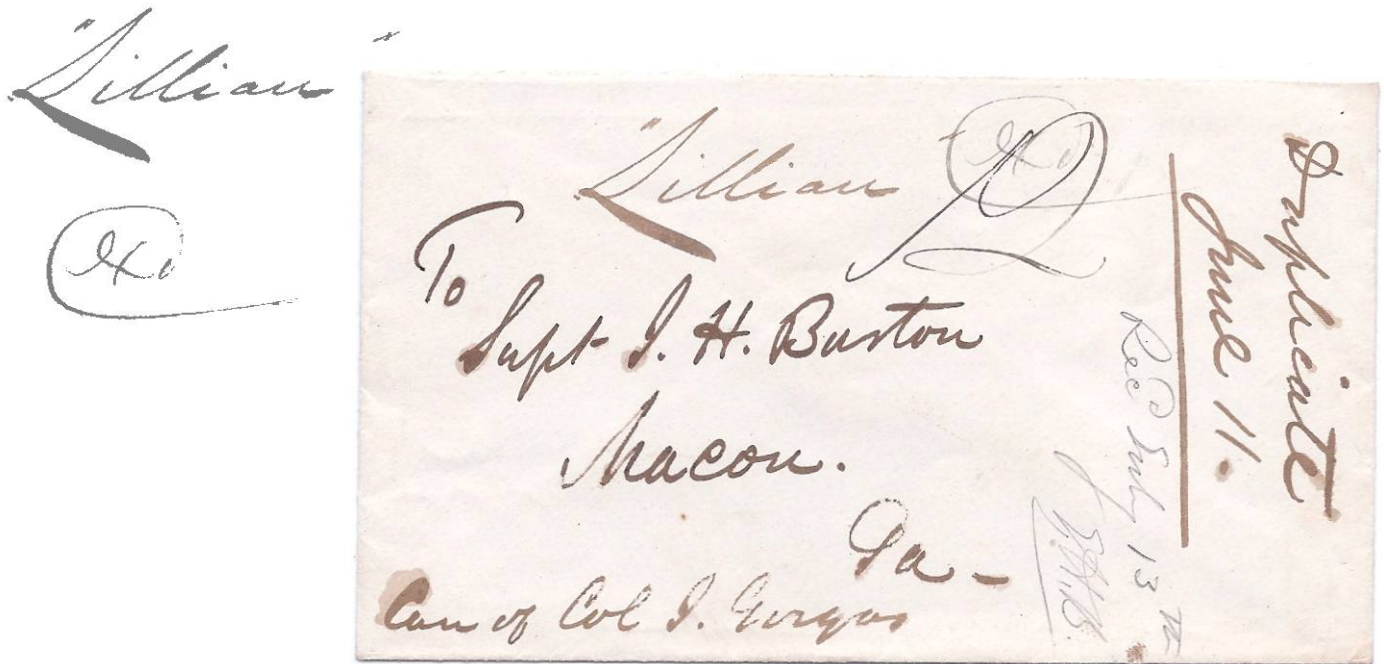 "Lillian"
"Lillian"
To
Supt J. H. Burton
Macon.
Ga -
Care of Col J. Gorgas
Duplicate
June 11.
Recd July 13th
J.H.B.